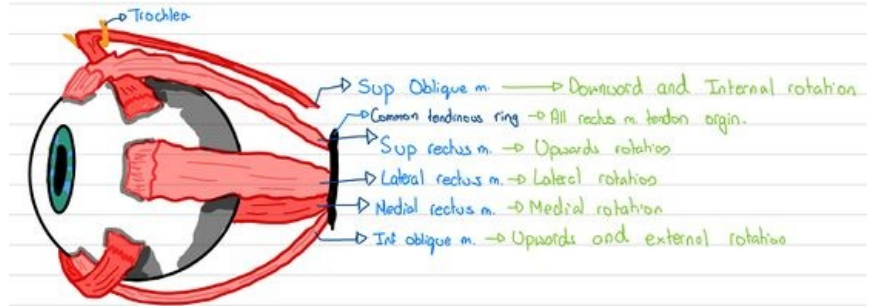 Trochlea
Sup Oblique m. → Downward and Internal rotation
Common tendinous ring → All rectus m. tendon orgin.
Sup rectus m. → Upwards rotation
Lateral rectus m. → Lateral rotation
Medial rectus m. → Medial rotation
Inf oblique m. → Upwards and external rotation